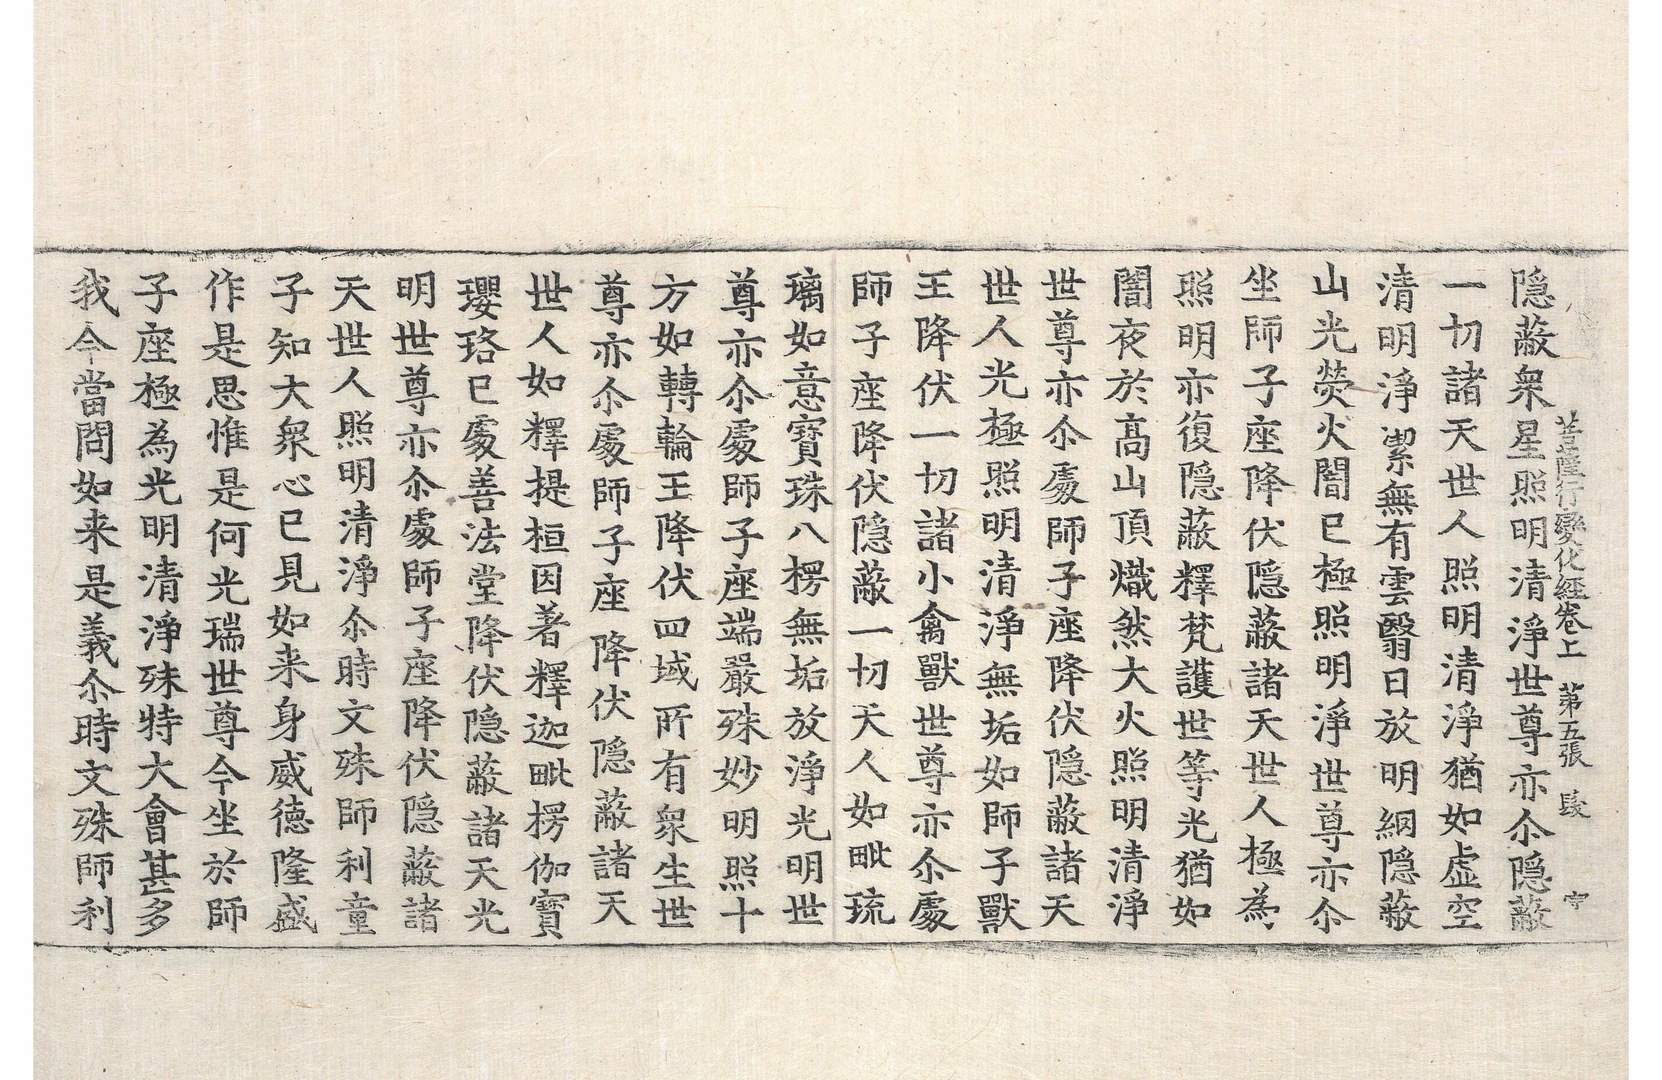 菩薩行變化経卷上 第五張
隐蔽衆星照明清淨世尊亦尒隐蔽
一切諸天世人照明清淨猶如虛空
清明淨潔無有雲翳日放明網隐蔽
山光熒火闇已極照明淨世尊亦尒
坐師子座降伏隐蔽諸天世人極為
照明亦復隐蔽釋梵護世等光猶如
闇夜於髙山頂熾然大火照明清淨
世尊亦尒處師子座降伏隐蔽諸天
世人光極照明清淨無垢如師子獸
王降伏一切諸小禽獸世尊亦尒處
師子座降伏隐蔽一切天人如毗琉
璃如意寳珠八楞無垢放淨光明世
尊亦尒處師子座端嚴殊妙明照十
方如轉輪王降伏四域所有衆生世
尊亦尒處師子座降伏隐蔽諸天
世人如釋提桓因著釋迦毗楞伽寳
瓔珞已處善法堂降伏隐蔽諸天光
明世尊亦尒處師子座降伏隐蔽諸
天世人照明清淨尒時文殊師利童
子知大衆心已見如来身威德隆盛
作是思惟是何光瑞世尊今坐於師
子座極為光明清淨殊特大會甚多
我今當問如来是義尒時文殊師利